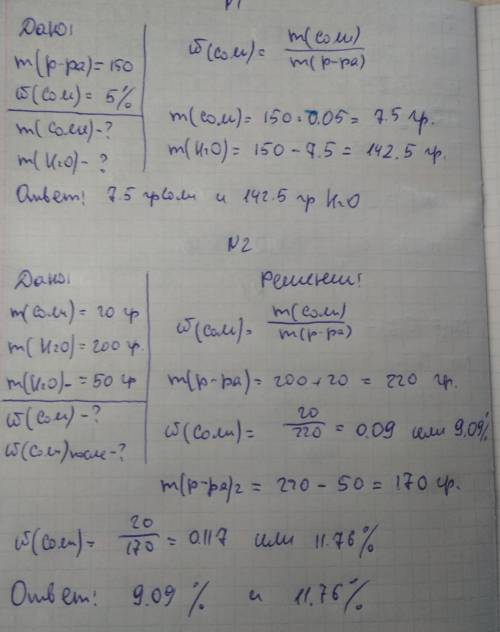 N1
Дано:
m(р-ра)=150
ω(соли)=5%
m(соли)-?
m(H2O)-?
ω(соли)= m(соли)/m(р-ра)
m(соли)=150·0.05=7.5 гр.
m(H2O)=150-7.5=142.5 гр.
Ответ: 7.5 гр соли и 142.5 гр H2O
N2
Дано:
m(соли)=20 гр
m(H2O)=200 гр.
m(H2O)-=50 гр
ω(соли)-?
ω(соли)после-?
Решение:
ω(соли)= m(соли)/m(р-ра)
m(р-ра)=200+20=220 гр.
ω(соли)= 20/220 =0.09 или 9.09%
m(р-ра)2=220-50=170 гр.
ω(соли)= 20/170 =0.117 или 11.76%
Ответ: 9.09% и 11.76%